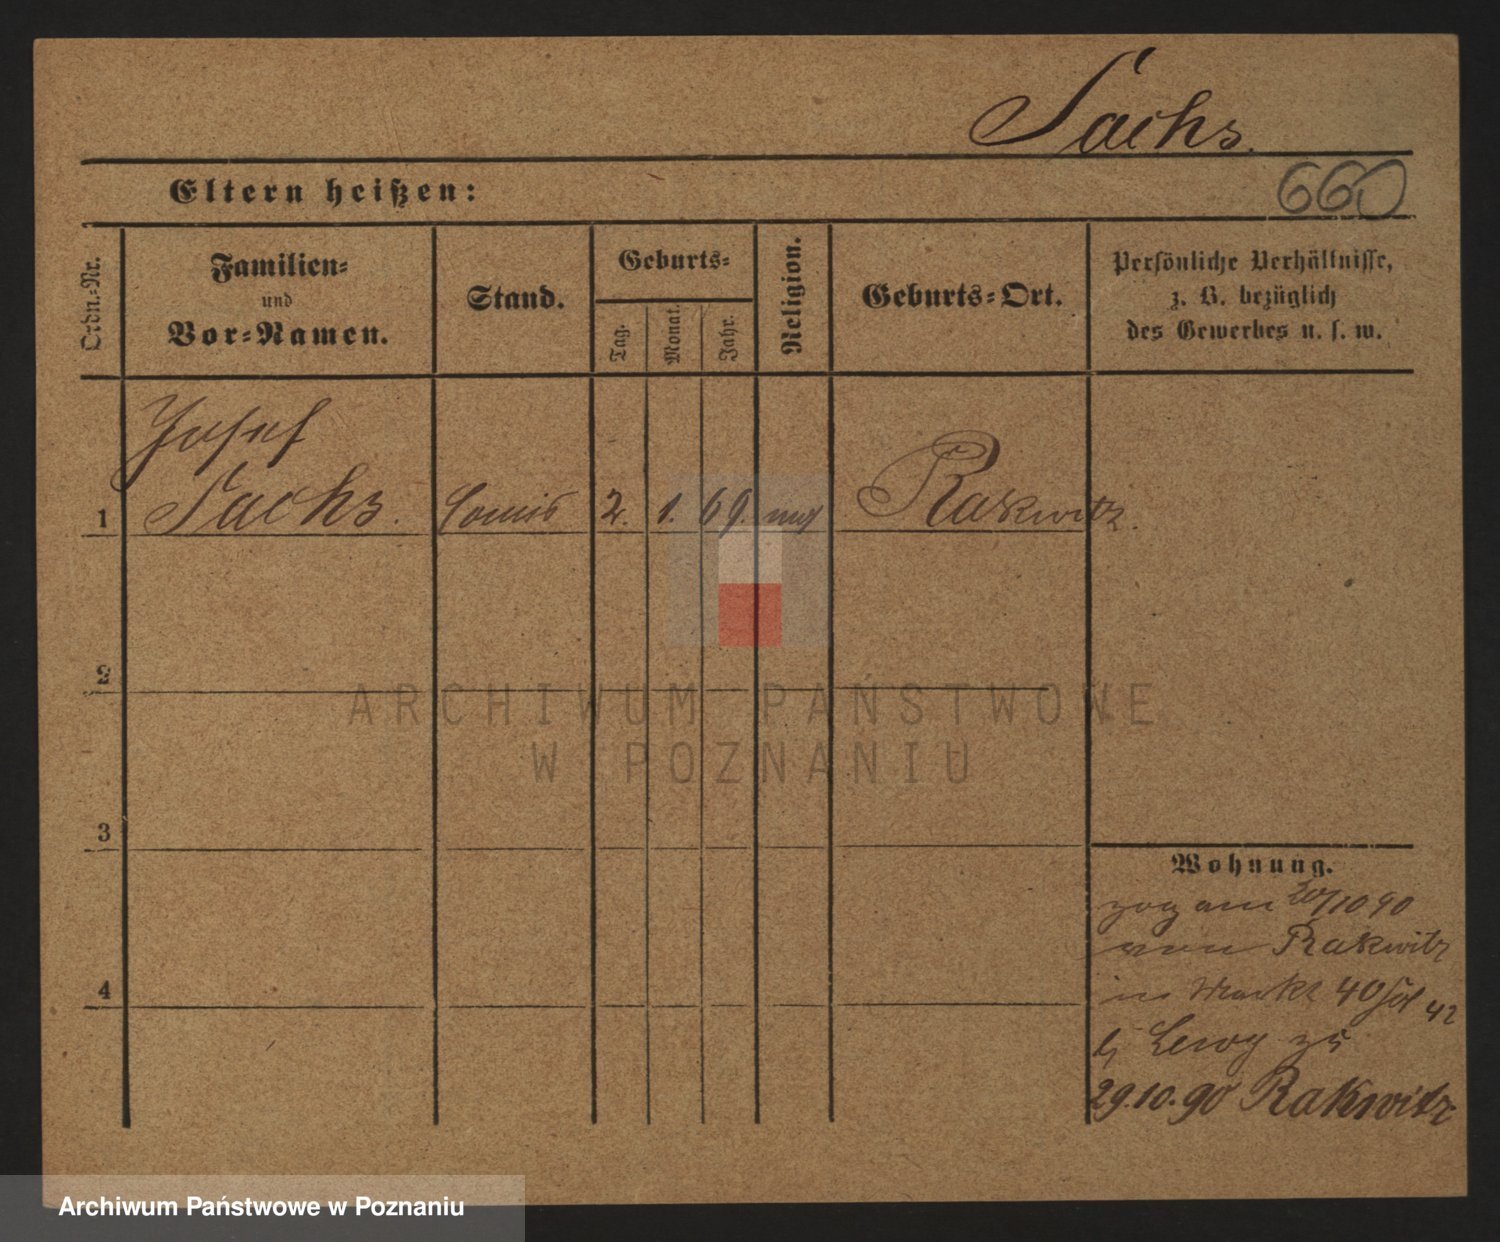 Sachs.
Eltern heißen:
660
Ordn.-Nr.
Familien-
und
Vor-Namen.
Stand.
Geburts-
Tag.
Monat.
Jahr.
Religion.
Geburts-Ort.
Persönliche Verhältnisse,
z. B. bezüglich
des Gewerbes u. s. w.
Josef
1 Sachs. Comis 2. 1. 69. mos Rakwitz.
2
3
4
Wohnung.
zog am 20/10 90
von Rakwitz
in Markt 40 42
b/ Lewy
29.10.90 Rakwitz
ARCHIWUM PAŃSTWOWE
W POZNANIU
Archiwum Państwowe w Poznaniu